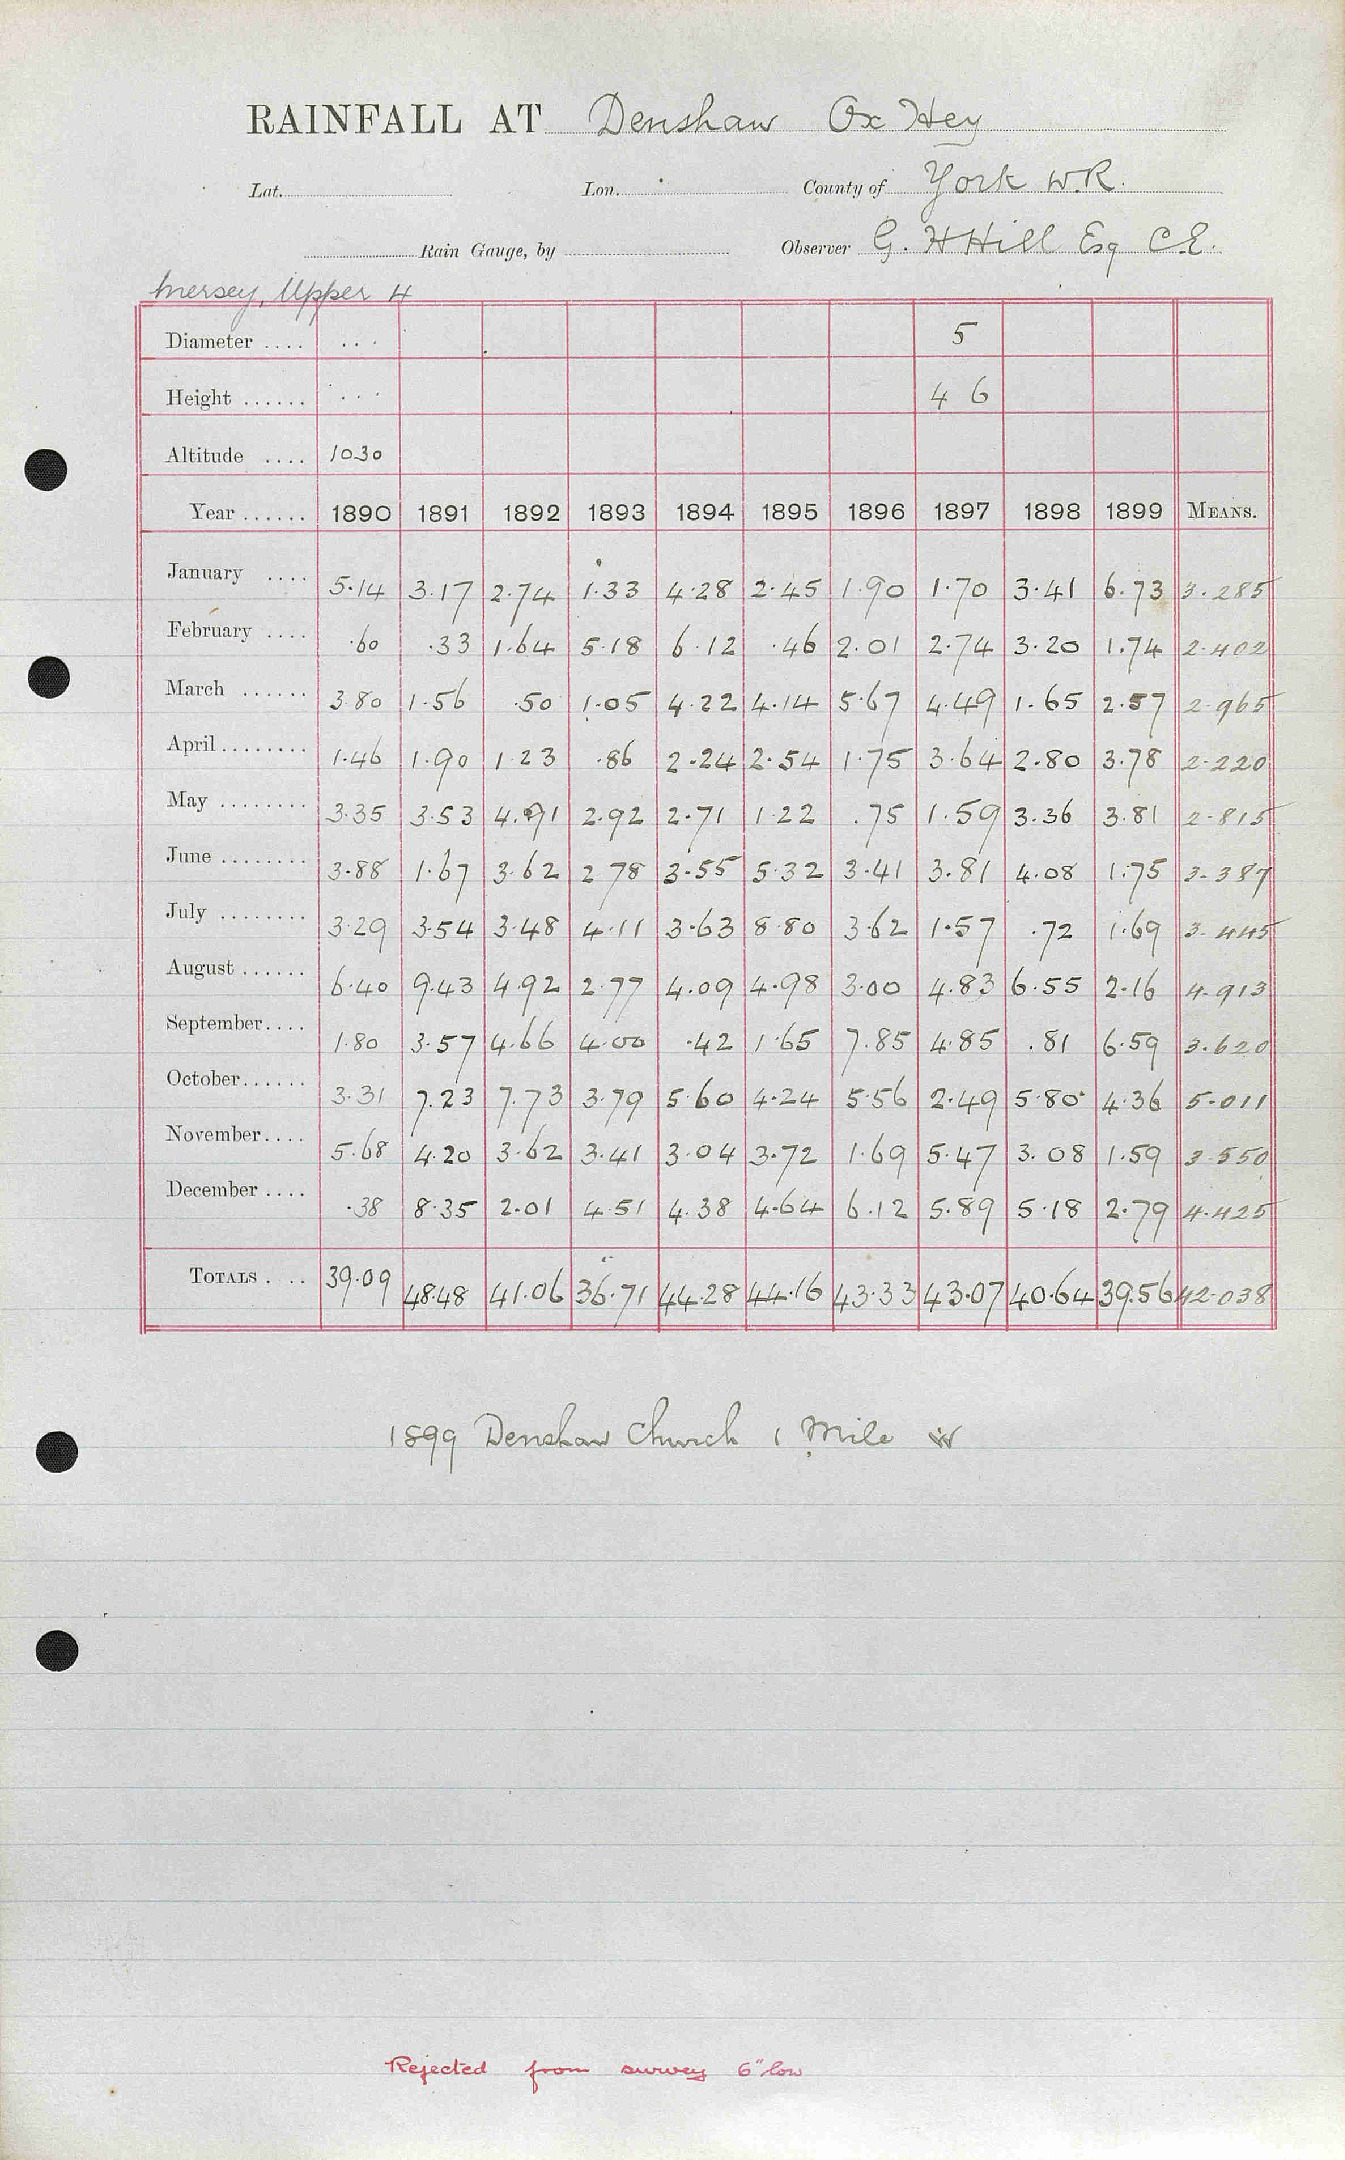 RAINFALL AT Denshaw Ox Hey
Lat. Lon. County of York W.R.
Rain Gauge, by Observer G. H Hill Esq C.E.
Mersey, Upper 4
Diameter .... ... 5
Height ...... ... 4 6
Altitude .... 1030
Year ...... 1890 1891 1892 1893 1894 1895 1896 1897 1898 1899 MEANS.
January .... 5.14 3.17 2.74 1.33 4.28 2.45 1.90 1.70 3.41 6.73 3.285
February .... .60 .33 1.64 5.18 6.12 .46 2.01 2.74 3.20 1.74 2.402
March ...... 3.80 1.56 .50 1.05 4.22 4.14 5.67 4.49 1.65 2.57 2.965
April ........ 1.46 1.90 1.23 .86 2.24 2.54 1.75 3.64 2.80 3.78 2.220
May ........ 3.35 3.53 4.91 2.92 2.71 1.22 .75 1.59 3.36 3.81 2.815
June ........ 3.88 1.67 3.62 2.78 3.55 5.32 3.41 3.81 4.08 1.75 3.387
July ........ 3.29 3.54 3.48 4.11 3.63 8.80 3.62 1.57 .72 1.69 3.445
August ...... 6.40 9.43 4.92 2.77 4.09 4.98 3.00 4.83 6.55 2.16 4.913
September.... 1.80 3.57 4.66 4.00 .42 1.65 7.85 4.85 .81 6.59 3.620
October...... 3.31 7.23 7.73 3.79 5.60 4.24 5.56 2.49 5.80 4.36 5.011
November.... 5.68 4.20 3.62 3.41 3.04 3.72 1.69 5.47 3.08 1.59 3.550
December .... .38 8.35 2.01 4.51 4.38 4.64 6.12 5.89 5.18 2.79 4.425
TOTALS . .. 39.09 48.48 41.06 36.71 44.28 44.16 43.33 43.07 40.64 39.56 42.038
1899 Denshaw Church 1 Mile W
Rejected from survey 6" low